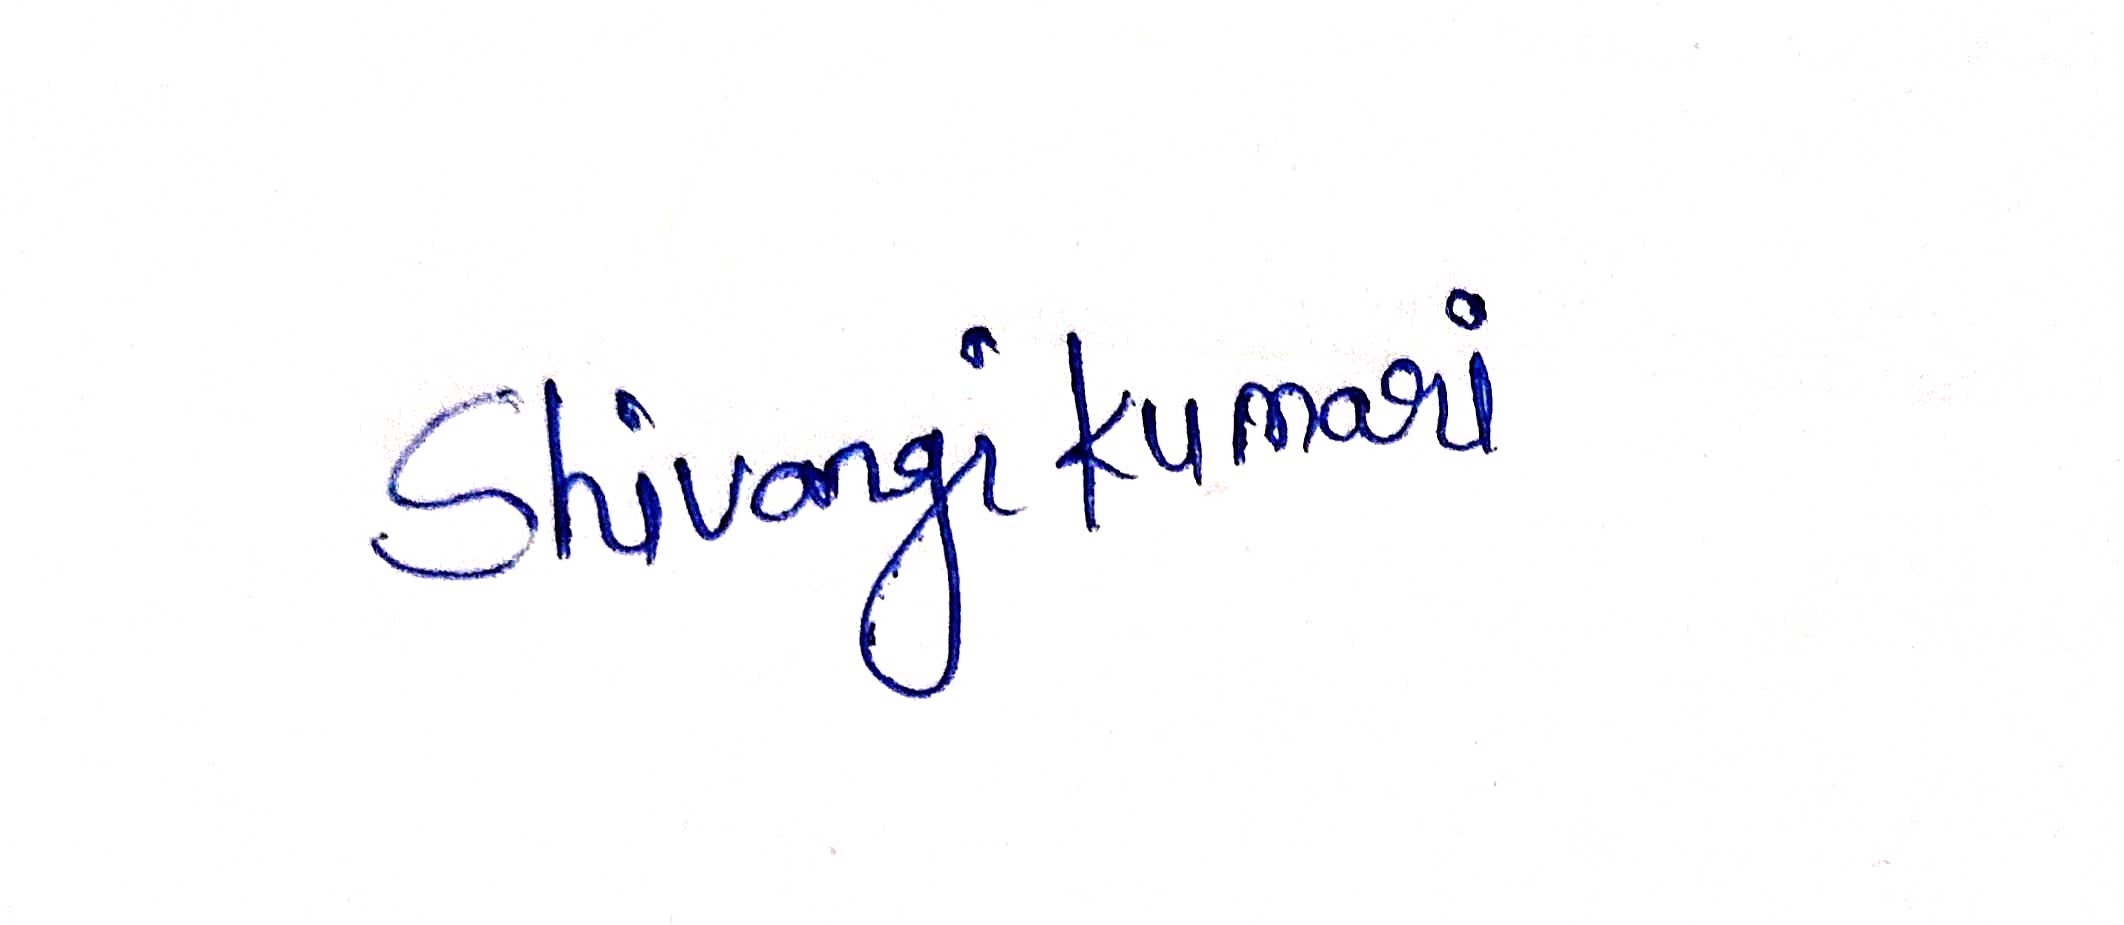 Shivangi kumari